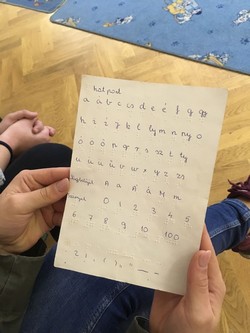 kalpod
a á b c cs d e é f g gy
h i í j k l ly m n ny o
ó ö ő p q r s sz t ty
u ú ü ű v w x y z zs
Nagybetűjel A Á M
számjel 0 1 2 3 4 5
6 7 8 9 10 100